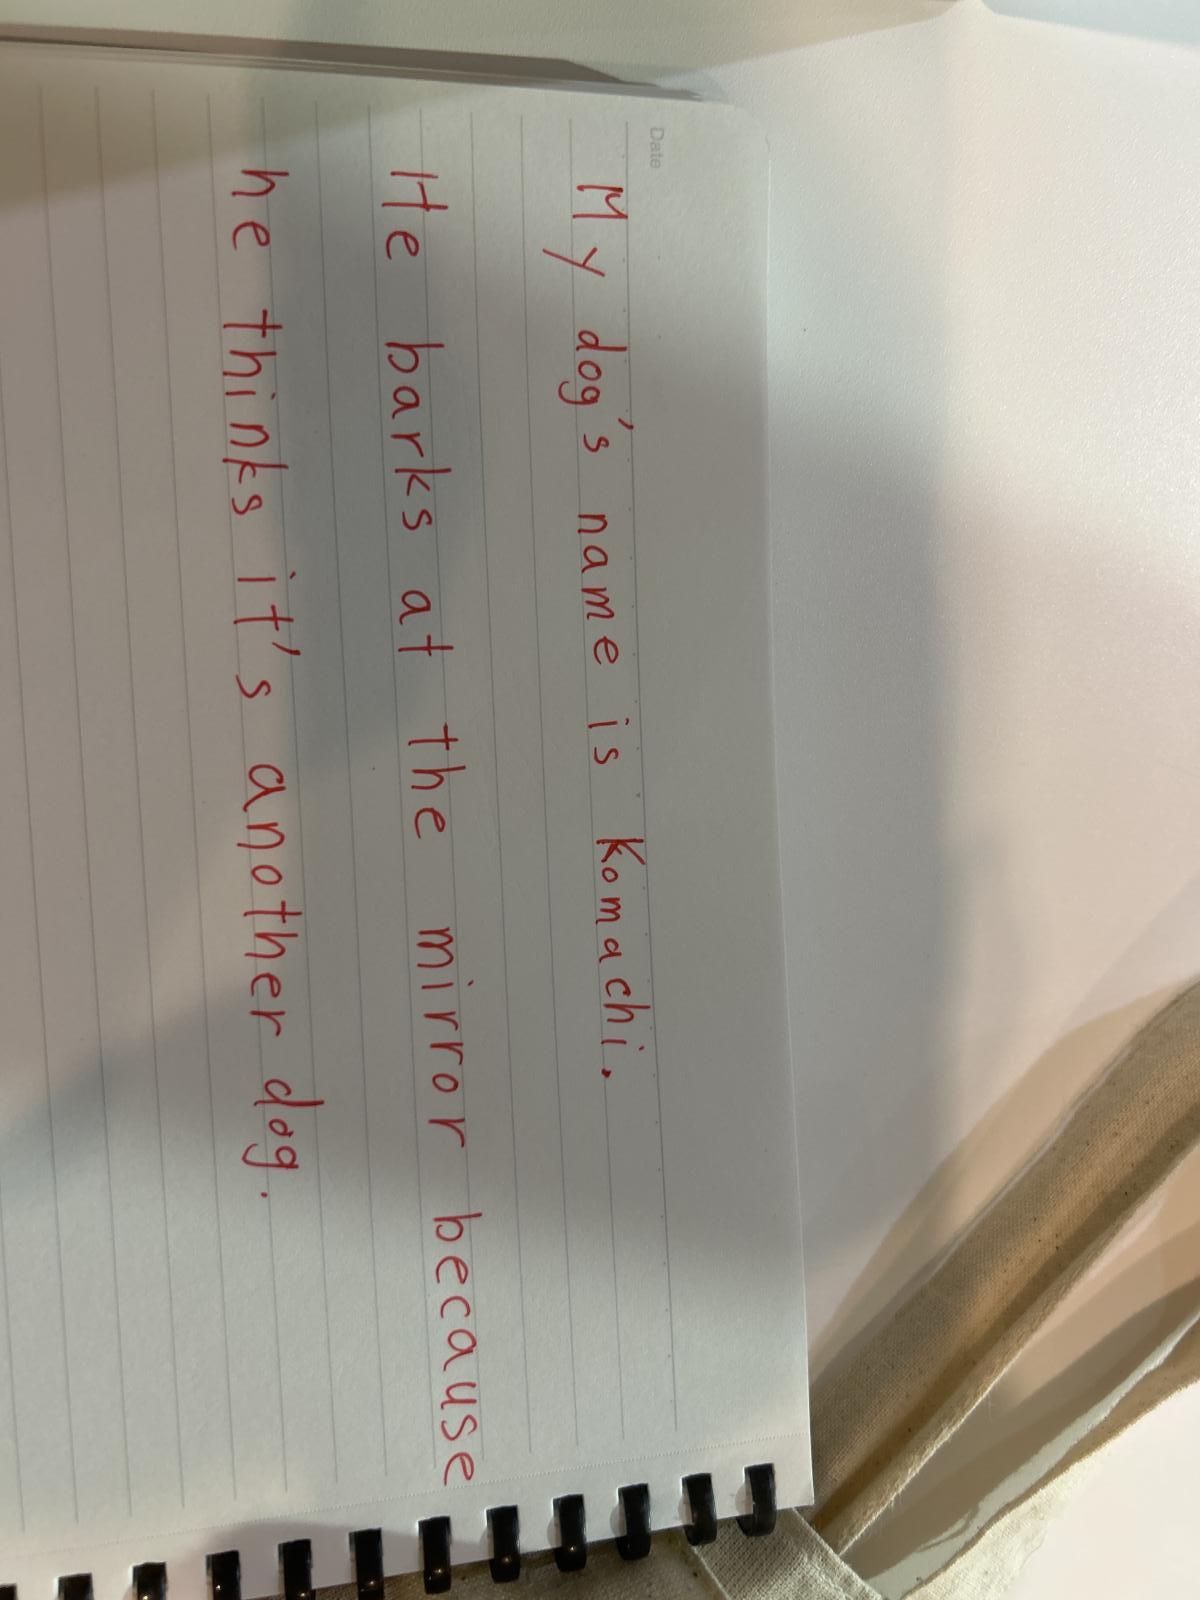 Date
My dog's name is Komachi.
He barks at the mirror because
he thinks it's another dog.